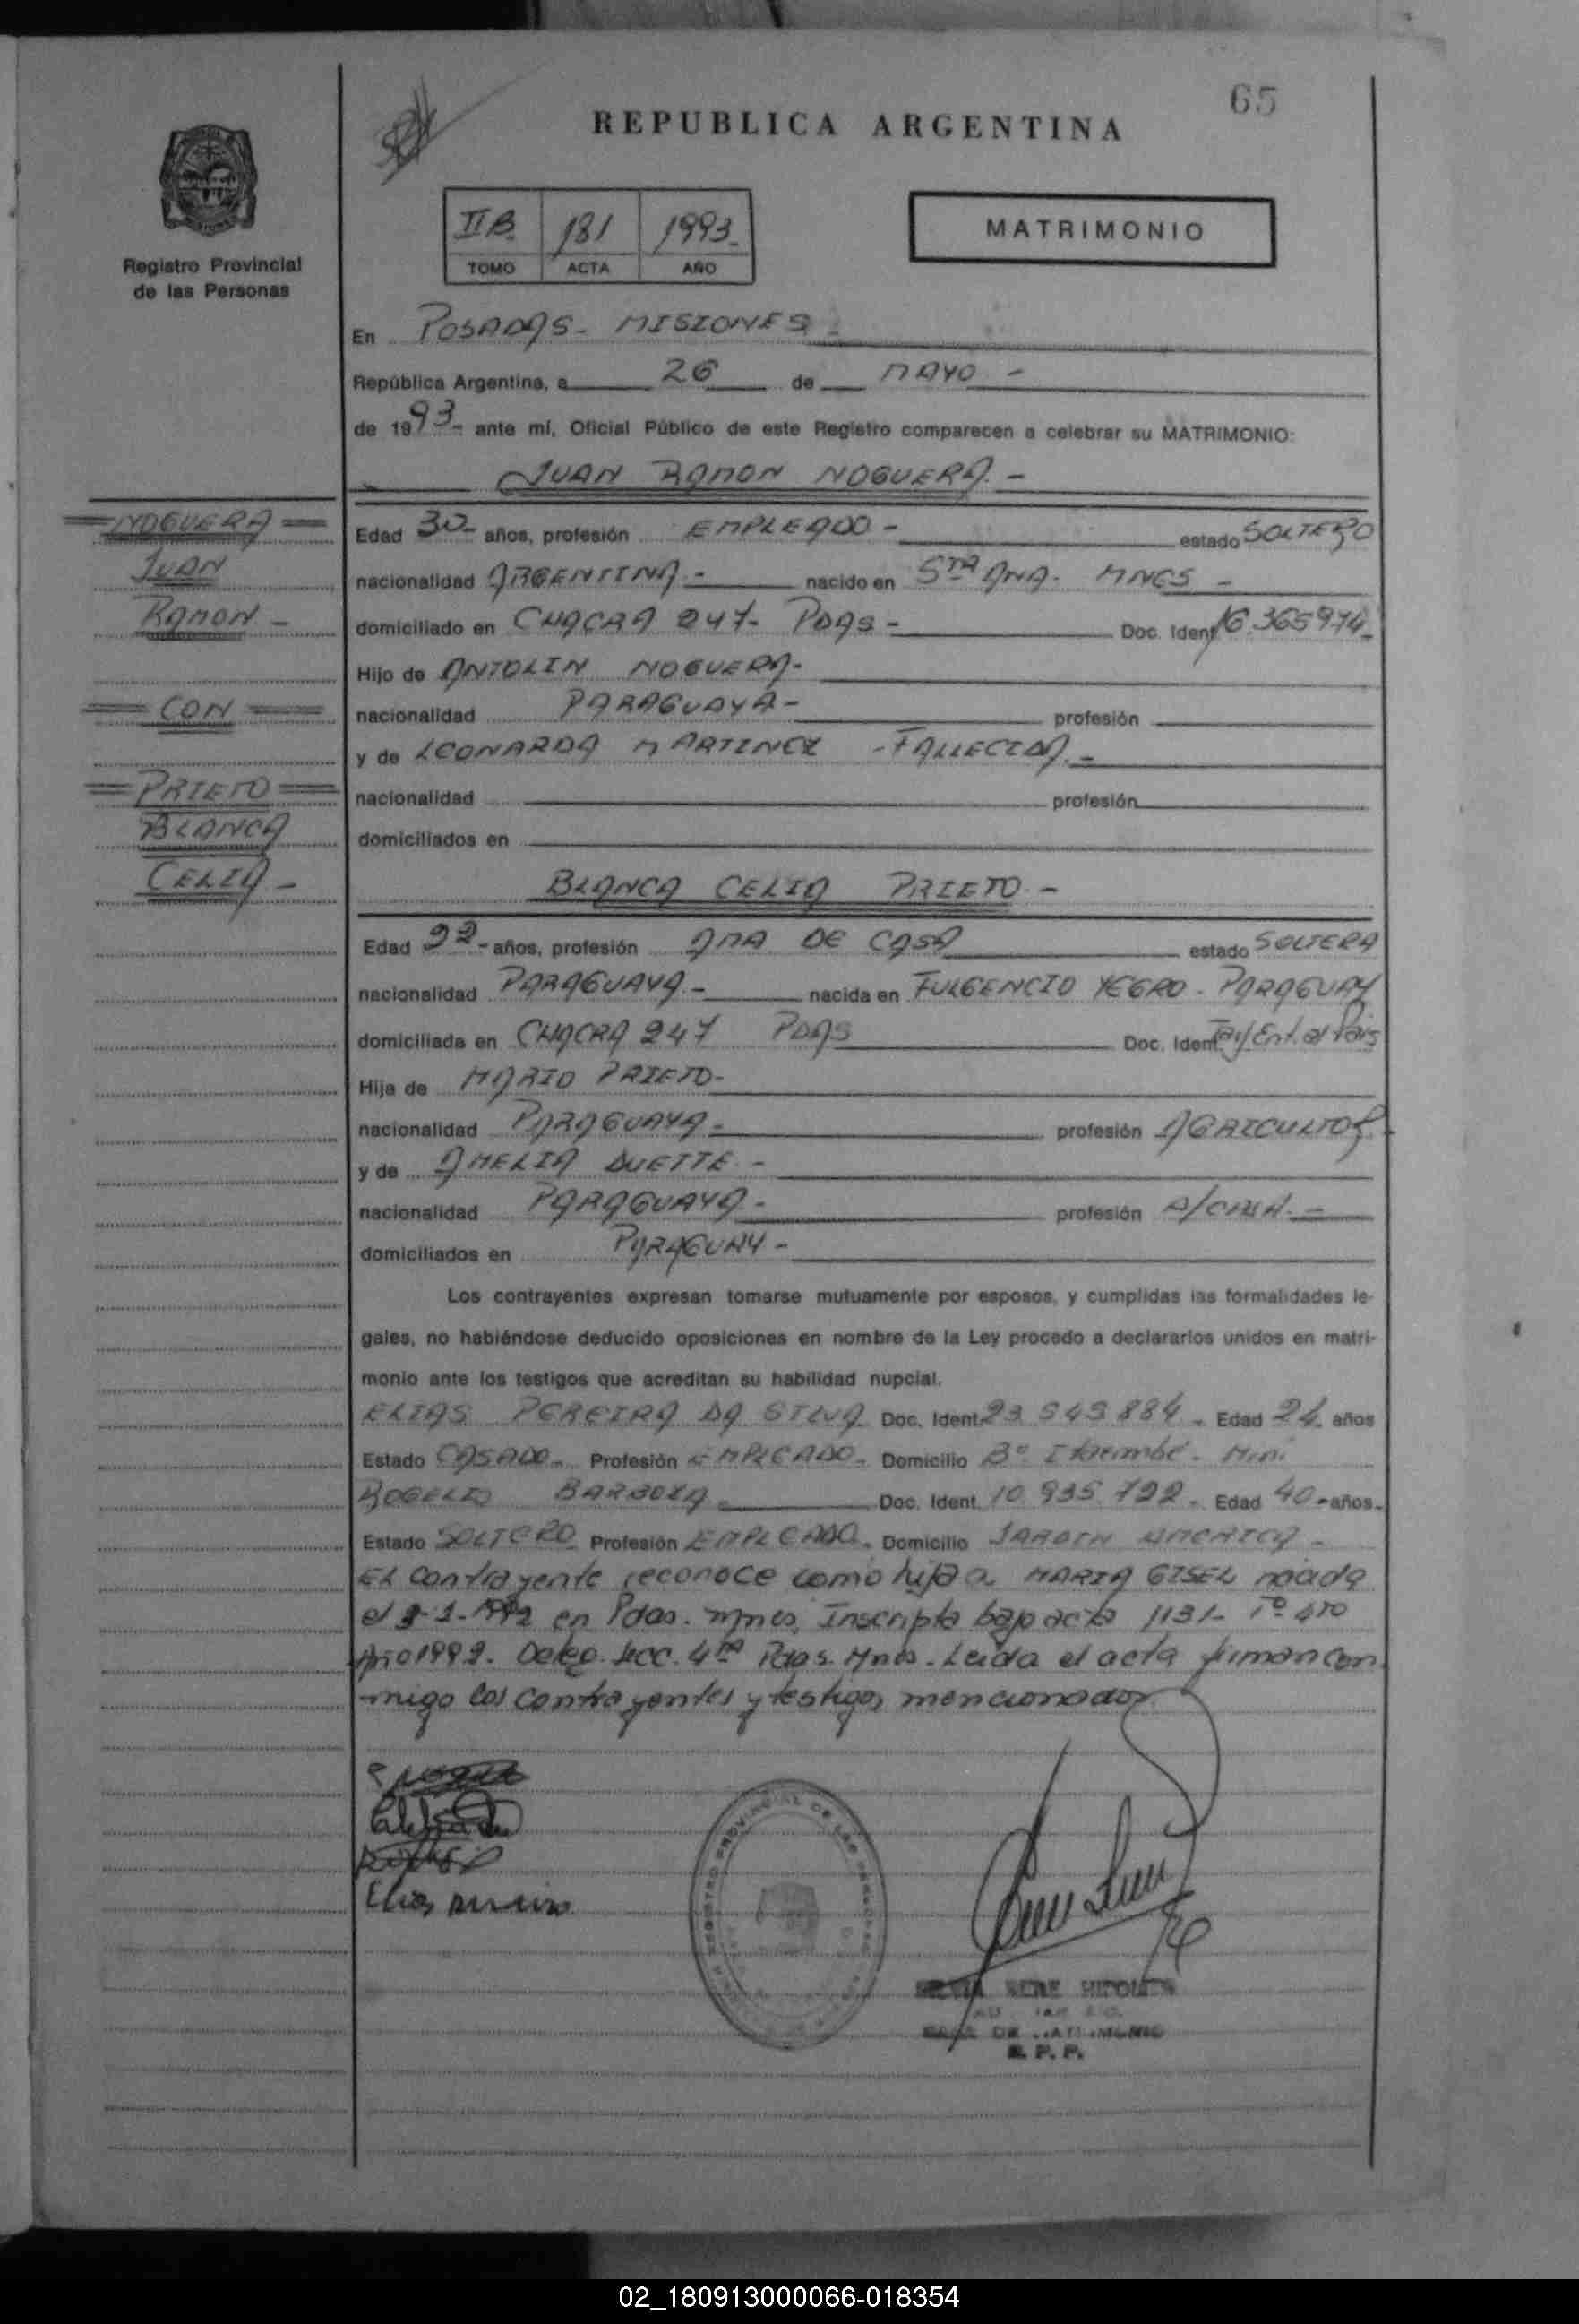 65
REPUBLICA ARGENTINA
IIB. 181 1993.
TOMO ACTA AÑO
MATRIMONIO
Registro Provincial
de las Personas
En POSADAS - MISIONES -
República Argentina, a 26 de MAYO -
de 1993 - ante mí, Oficial Público de este Registro comparecen a celebrar su MATRIMONIO:
JUAN RAMON NOGUERA. -
NOGUERA
JUAN
RAMON -
CON
PRIETO
BLANCA
CELIA -
Edad 30 - años, profesión EMPLEADO - estado SOLTERO
nacionalidad ARGENTINA - nacido en STA ANA. MNES -
domiciliado en CHACRA 247- PDAS - Doc. Ident 16.365974
Hijo de ANTOLIN NOGUERA -
nacionalidad PARAGUAYA - profesión
y de LEONARDA MARTINEZ - FALLECIDA. -
nacionalidad profesión
domiciliados en
BLANCA CELIA PRIETO -
Edad 22 - años, profesión AMA DE CASA estado SOLTERA
nacionalidad PARAGUAYA. - nacida en FULGENCIO YEGRO - PARAGUAY
domiciliada en CHACRA 247 PDAS Doc. Ident Taj Ent. al Pais
Hija de MARIO PRIETO -
nacionalidad PARAGUAYA - profesión AGRICULTOR.
y de AMELIA DUETTE -
nacionalidad PARAGUAYA - profesión A/CASA. -
domiciliados en PARAGUAY -
Los contrayentes expresan tomarse mutuamente por esposos, y cumplidas las formalidades le-
gales, no habiéndose deducido oposiciones en nombre de la Ley procedo a declararlos unidos en matri-
monio ante los testigos que acreditan su habilidad nupcial.
ELIAS PEREIRA DA SILVA Doc. Ident. 23 543 884 - Edad 24 años
Estado CASADO - Profesión EMPLEADO - Domicilio Bº Itaembé - Mini
ROGELIO BARBOZA Doc. Ident. 10 935 722 - Edad 40 - años.
Estado SOLTERO Profesión EMPLEADO. Domicilio JARDIN AMERICA -
El contrayente reconoce como hija a MARIA GISEL nacida
el -1-1992 en Pdas. Mnes, Inscripta bajo acta 1131- Tº 4TO
Año 1992. Deleg. Secc. 4ta Pdas. Mnes. Leida el acta firman con
migo los contrayentes y testigos mencionados
Elias
REGISTRO PROVINCIAL DE LAS PERSONAS